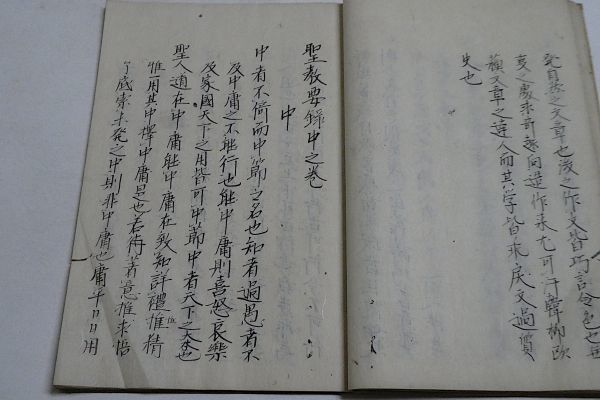 発自然之文章也後之作文皆巧言令色也無
蘓文章之達人而其学皆来戻文過實
失也
聖教要録中之巻
中
中者不倚而中節之名也知者過愚者不
及中庸之不能行也能中庸則喜怒哀樂
及家國天下之用皆可中節中者天下之大本也
聖人道在中庸能中庸在致知詳禮惟精
惟一用其中擇中庸是也若待著意推求悟
了底索未発之中則非中庸也庸平日日用